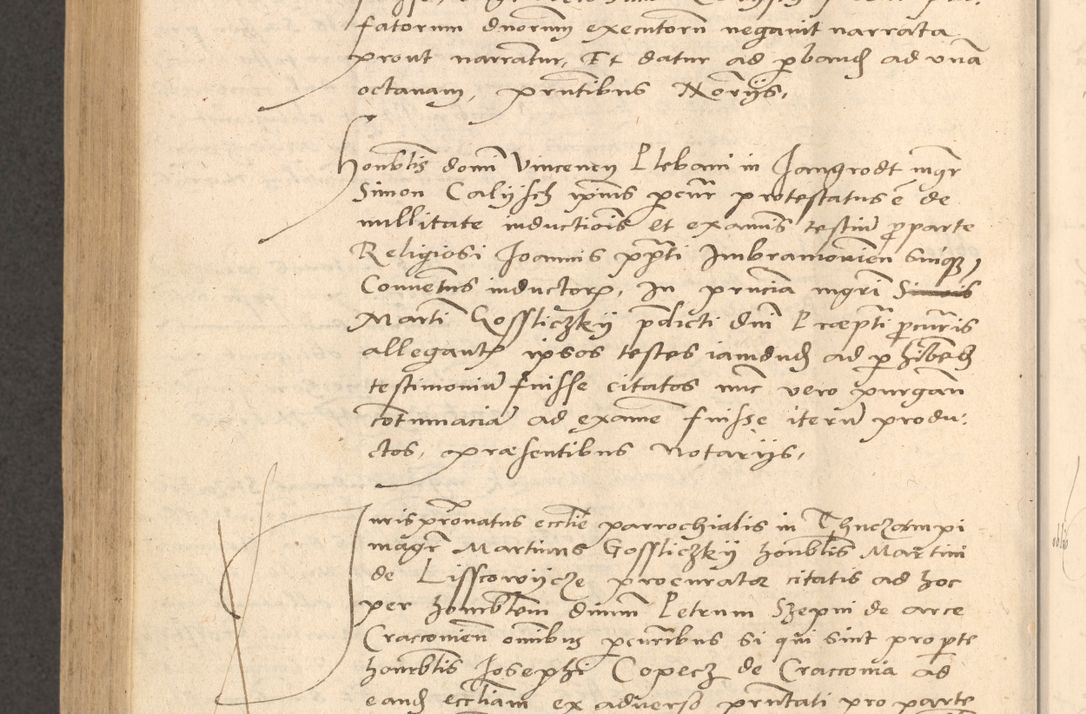 fatorum dnorum executorum negavit narrata
prout narrantur, Et datur ad probandum ad unam
octavam, prntibus Notarijs,
Honblis domi Vincency Plebani in Jangrodt mgr
Simon Calijsch ipius procur protestatus e de
nullitate inductiois et examis testiu pro parte
Religiosi Joannis ppti Imbramovien suiq
Conventus inductorum, In pncia mgri Simonis
Martini Gossliczkij pdicti dni Praepti procuris
allegantis ipsos testes iamdud ad perhibend
testimoniu fuisse citatos nuc vero purgan
cotumacia ad exame fuisse iteru produ-
ctos, praesentibus Notarijs,
Iuris pronatus ecclie parrochialis in Thuczampi
magr Martinus Gossliczkij honblis Martini
de Lisscowijcze procurator citatis ad hoc
per honorablem dnum Petrum Szepni de arce
Cracovien omibus procuribus si qui sint pro pte
honorblis Josephi Copecz de Cracovia ad
eand eccliam ex adverso pntati pro parte